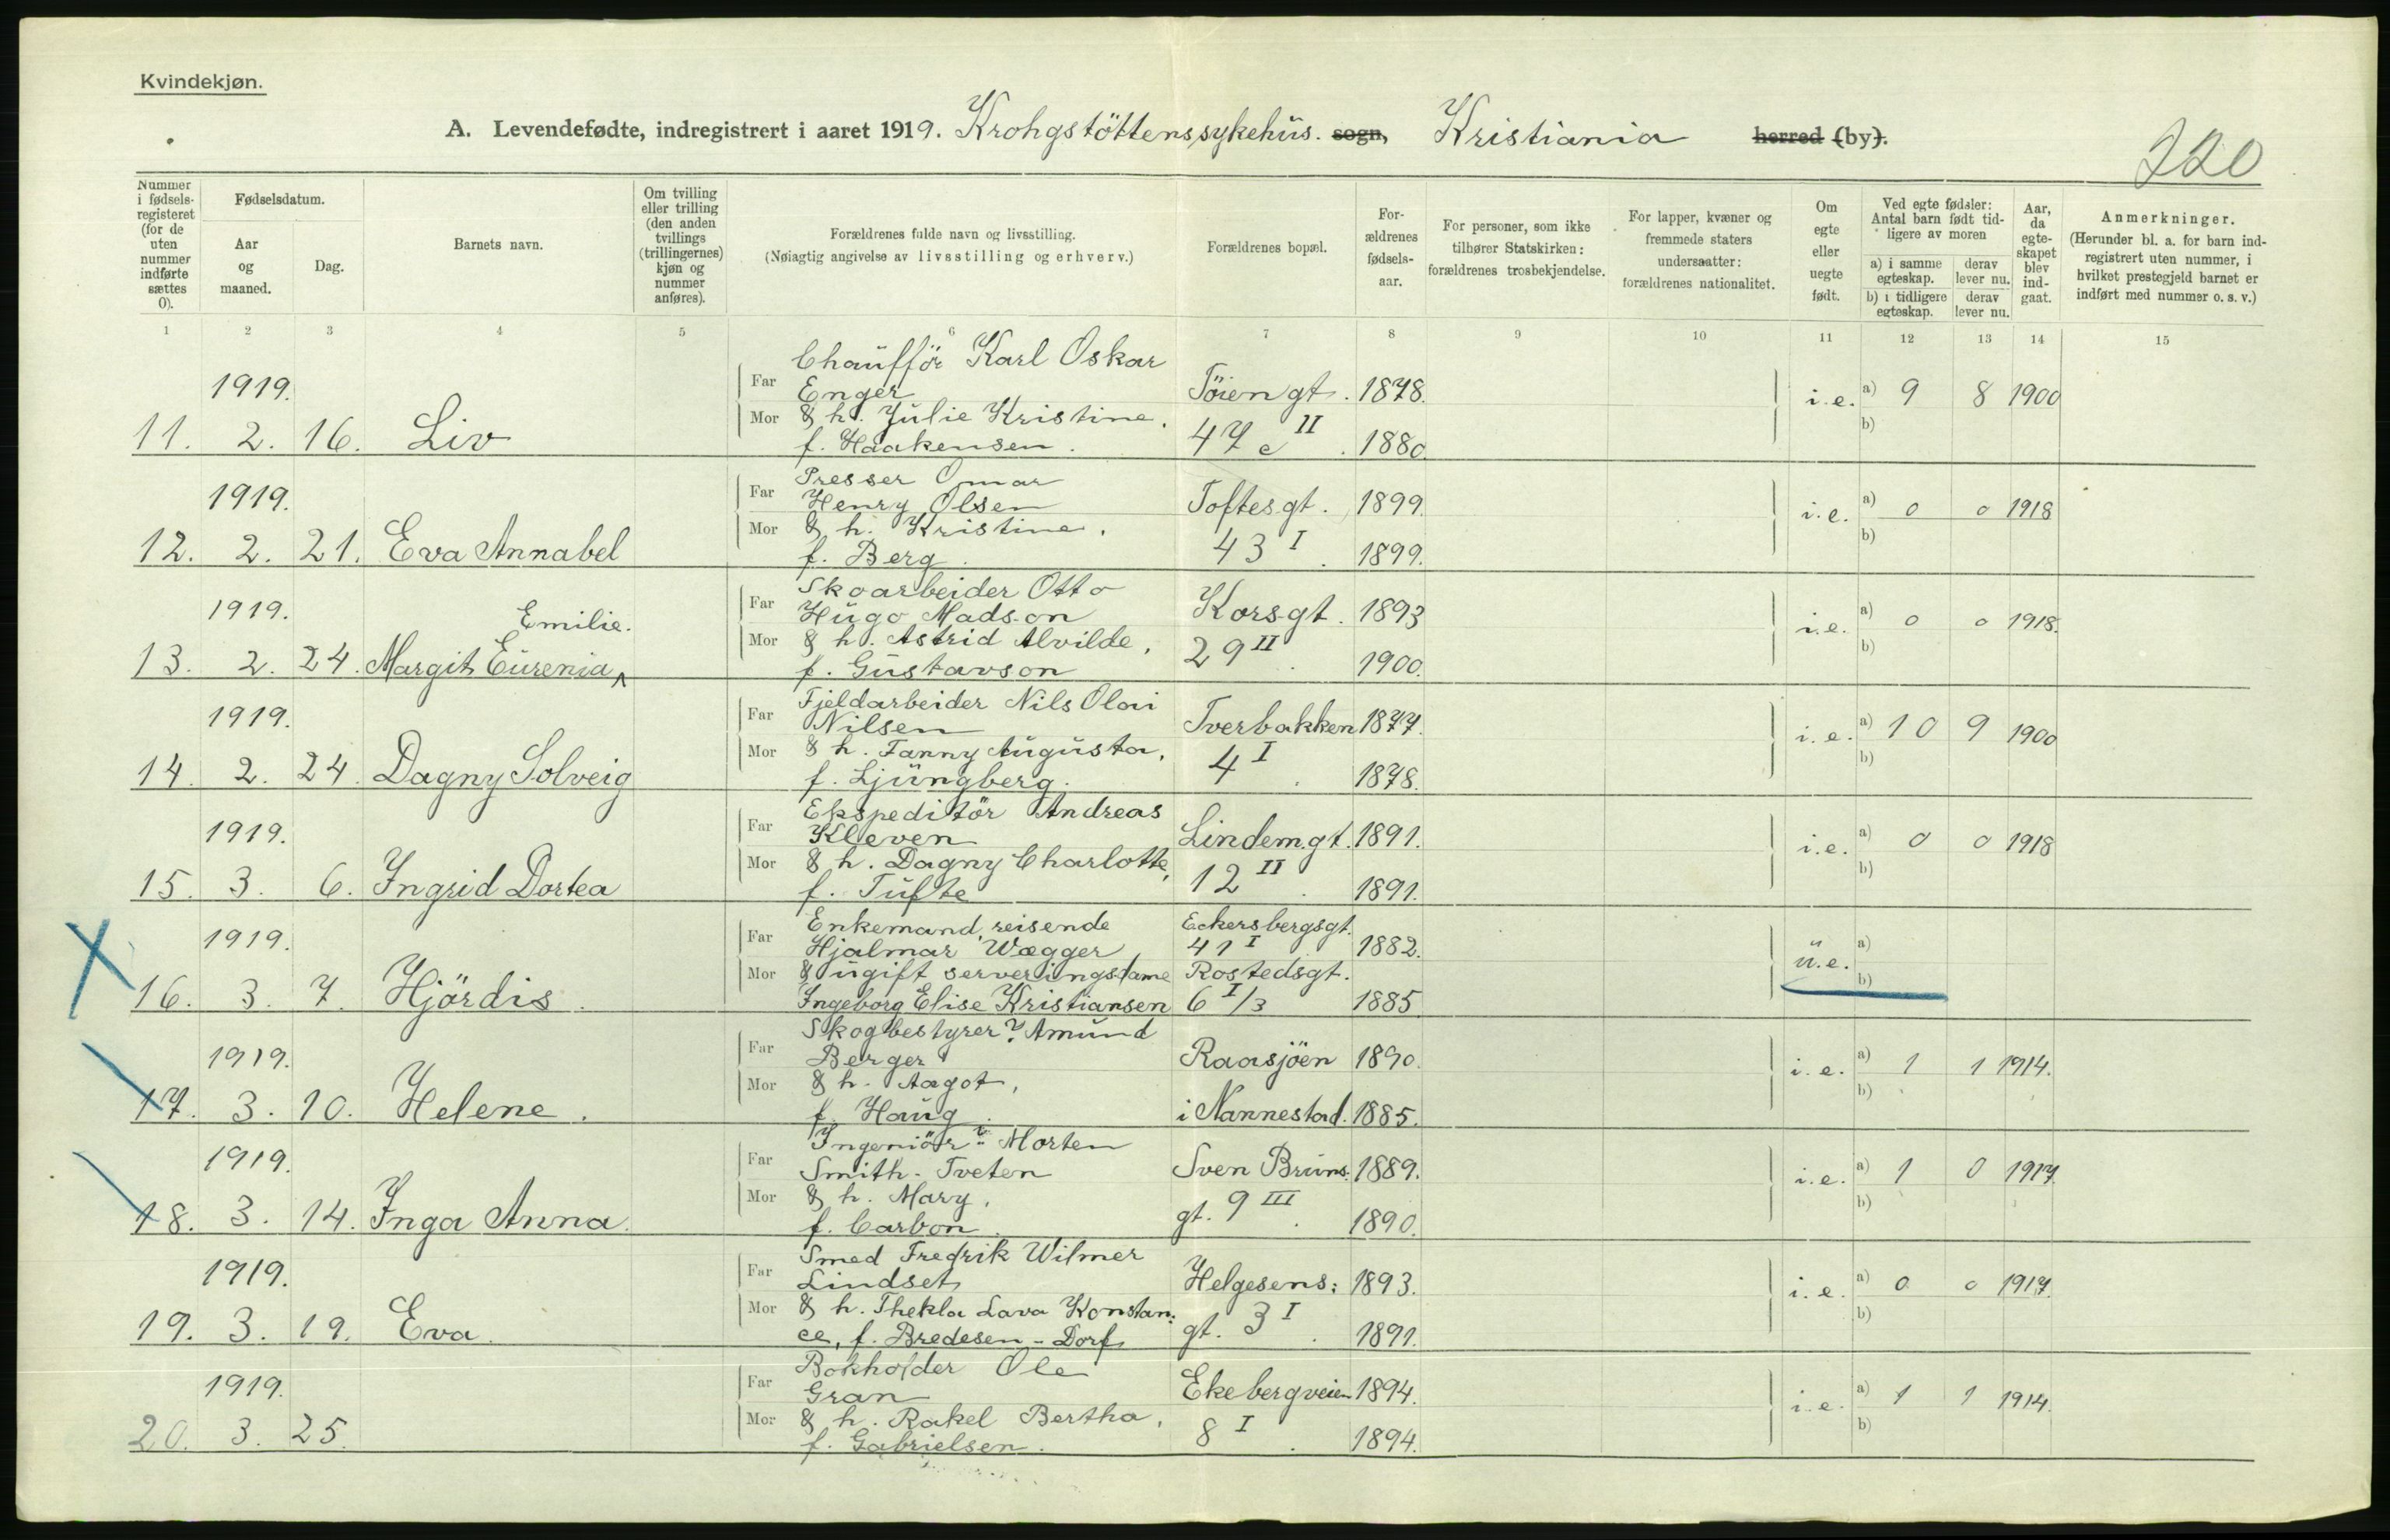 Kvindekjøn.
A. Levendefødte, indregistrert i aaret 1919. Krohgstöttens sykehüs. sogn, Kristiania herred (by).
220
Nummer i fødselsregisteret (for de uten nummer indførte sættes 0).
Fødselsdatum.
Aar og maaned.
Dag.
Barnets navn.
Om tvilling eller trilling (den anden tvillings (trillingernes) kjøn og nummer anføres).
Forældrenes fulde navn og livsstilling.
(Nøiagtig angivelse av livsstilling og erhverv.)
Forældrenes bopæl.
Forældrenes fødselsaar.
For personer, som ikke tilhører Statskirken: forældrenes trosbekjendelse.
For lapper, kvæner og fremmede staters undersaatter: forældrenes nationalitet.
Om egte eller uegte født.
Ved egte fødsler: Antal barn født tidligere av moren
a) i samme egteskap.
derav lever nu.
b) i tidligere egteskap.
derav lever nu.
Aar, da egteskapet blev indgaat.
Anmerkninger.
(Herunder bl. a. for barn indregistrert uten nummer, i hvilket prestegjeld barnet er indført med nummer o. s. v.)
1 2 3 4 5 6 7 8 9 10 11 12 13 14 15
Chaufför Karl Oskar
1919. Far Enger Töiengt. 1878. i.e. a) 9 8 1900
Mor & h. Julie Kristine,
11. 2. 16. Liv f. Haakensen. 47c II. 1880. b)
Presser Omar
1919. Far Henry Olsen Toftesgt. 1899. i.e. a) 0 0 1918
Mor & h. Kristine,
12. 2. 21. Eva Annabel f. Berg. 43 I. 1899. b)
Skoarbeider Otto
1919. Emilie. Far Hügo Madson Korsgt. 1893 i.e. a) 0 0 1918.
Mor & h. Astrid Alvilde,
13. 2. 24. Margit Eürenia f. Güstavson 29 II. 1900. b)
Fjeldarbeider Nils Olai
1919. Far Nilsen Tverbakken 1877. i.e. a) 10 9 1900
Mor & h. Fanny Aügüsta,
14. 2. 24. Dagny Solveig f. Ljüngberg. 4 I. 1878. b)
Ekspeditör Andreas
1919. Far Kleven Lindem.gt. 1891. i.e. a) 0 0 1918
Mor & h. Dagny Charlotte,
15. 3. 6. Ingrid Dortea f. Tüfte 12 II. 1891. b)
Enkemand, reisende Eckersbergsgt.
1919. Far Hjalmar Wægger 41 I 1882. ü.e. a)
Mor & ügift serveringsdame Rostedsgt.
16. 3. 7. Hjördis. Ingeborg Elise Kristiansen 6 I/3 1885 b)
Skogbestyrer? Amünd
1919. Far Berger Raasjöen 1890. i.e. a) 1 1 1914.
Mor & h. Aagot,
17. 3. 10. Helene. f. Haüg. i Nannestad. 1885. b)
Ingeniör Morten
1919. Far Smith-Tveten Sven Brüns 1889. i.e. a) 1 0 1917.
Mor & h. Mary,
18. 3. 14. Inga Anna. f. Carbon. gt. 9 III. 1890. b)
Smed Fredrik Wilmer
1919. Far Lindset Helgesens: 1893. i.e. a) 0 0 1917.
Mor & h. Thekla Lava Konstan:
19. 3. 19. Eva. ce, f. Bredesen-Dorf gt. 3 I. 1891. b)
Bokholder Ole
1919. Far Gran Ekebergveien 1894. i.e. a) 1 1 1914.
Mor & h. Rakel Bertha,
20. 3. 25. f. Gabrielsen. 8 I. 1894. b)